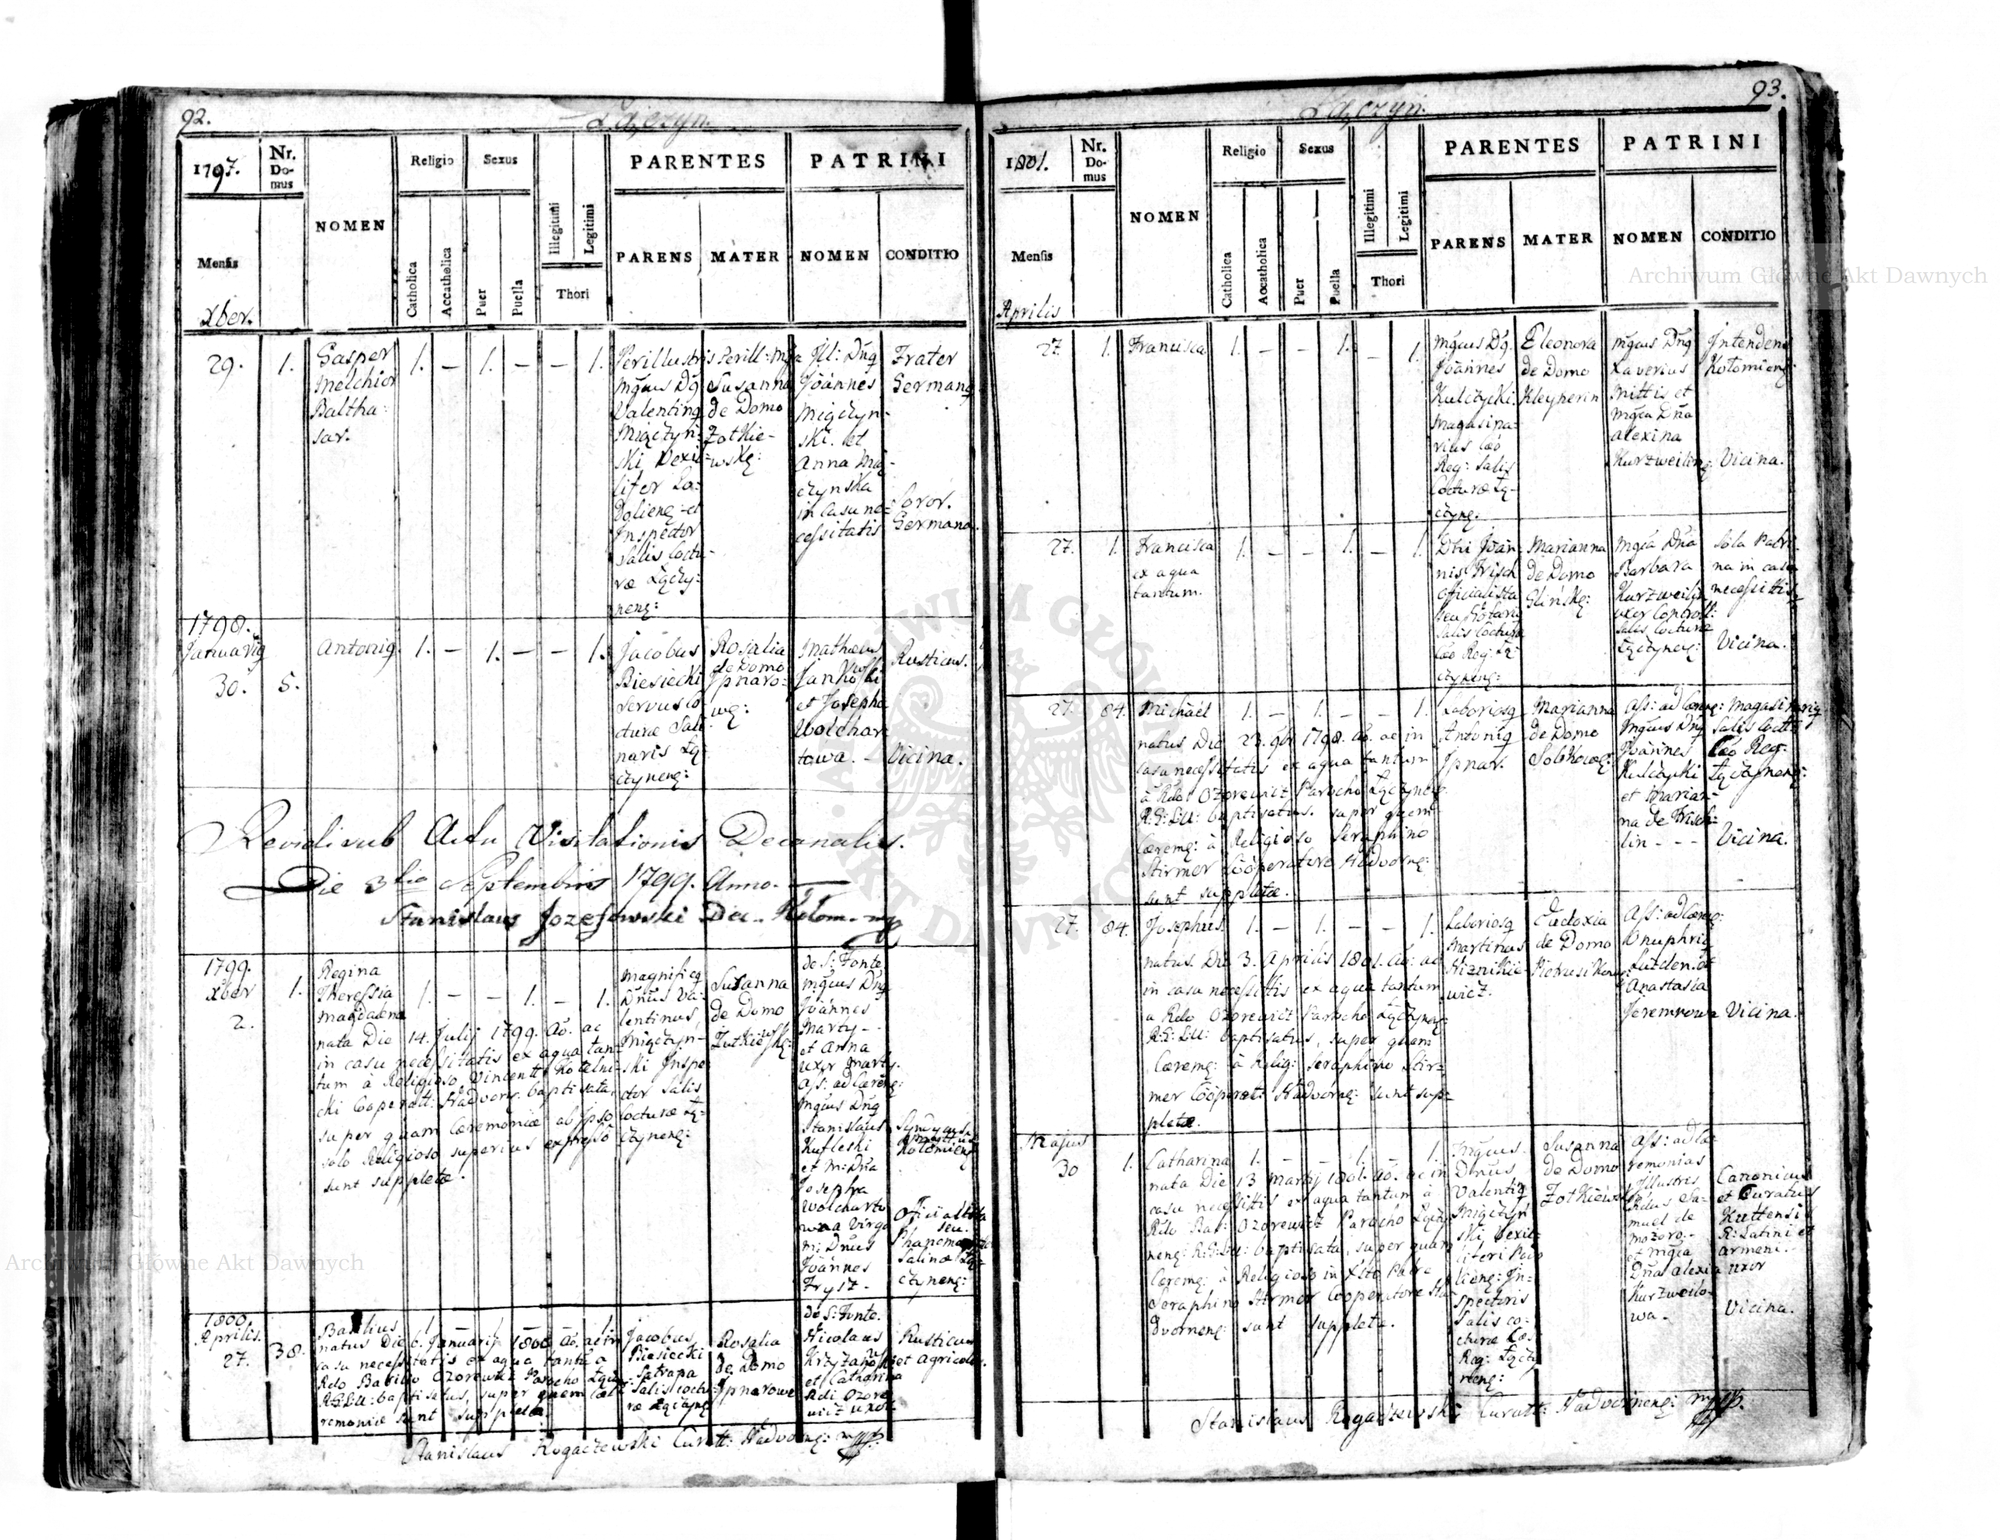 92.
Łączyn.
1797.
Nr. Domus
NOMEN
Religio
Sexus
PARENTES
PATRINI
Mensis
Catholica
Accatholica
Puer
Puella
Illegitimi
Legitimi
Thori
PARENS
MATER
NOMEN
CONDITIO
xber.
29.
1.
Gasper
Melchior
Baltha:
sar.
1.
—
1.
—
—
1.
Perillustris
Mgcus Dnq
Valentinq
Migczyń:
ski Vexil-
lifer
et
Inspector
Salis Coctu-
ræ Łączy:
neng:
Perill: Mga
Susanna
de Domo
Zotkie-
wskg:
Jll: Dnq
Joannes
Migczyn-
ski. et
Anna Mig-
czynska
in Casu ne-
cessitatis
Frater
Germanq
Soror.
Germana.
1798.
Januarij
30.
5.
Antoniq.
1.
—
1.
—
—
1.
Jacobus
Biesiecki
Servus Co
cturæ Sali
naris Łą:
czyneng:
Rosalia
de Domo
Jpnaro-
wg:
Mathæus
Jankoski
et Josepha
Wolchar
towa. —
Rusticus.
Vicina.
Revidi sub Actu Visitationis Decanalis.
Die 3tia Septembris 1799. Anno.
Stanislaus Jozefowski Dec. Kołom. mp
1799.
xber
2.
1.
Regina
Theressia
Magdalena
1.
—
—
1.
—
1.
nata Die 14. Julij 1799. Ao. ac
in casu necessitatis ex aqua tan-
tum à Religioso Vincent: Kotelni-
cki Cooperatt: Nadvorn. baptisata,
super quam Cæremoniæ ab Ipso
solo Religioso superius expresso
sunt suppletæ.
Magnificq
Dnus Va-
lentinus
Migczyń-
ski Inspe
ctor Salis
Cocturæ Łą-
czyneng:
Susanna
de Domo
Zutkiewskg:
de S: Fonte
Mgcus Dnq
Joannes
Marty-
et Anna
uxor Marty.
Ass: ad Cæremg:
Mgcus Dnq
Stanislaus
Kufleski
et M: Dna
Josepha
Wolchartu
wna Virgo
M: Dnus
Joannes
Frysz-
Kolomieng
Officialista
seu
Salinæ Łą-
czyneng:
1800.
Aprilis.
27.
38.
Basilius
natus Die 6. Januarij 1800. Ao. ac in
casu necessitatis ex aqua tantu a
Rdo Basilio Ozorewicz Parocho Łącz
R:G:Lii: baptisatus, super quem Cæ-
remoniæ sunt suppletæ.
Jacobus
Biesiecki
Satrapa
Salis coctu-
ræ Łączyng
Rosalia
de Domo
Jpnarowe
de S: Fonte.
Nicolaus
Krzyżano
et Catharina
Rdi Ozore
wicz Uxor
Rusticus
et agricola.
Stanislaus Rogaczewski Curatt: Nadvorng: mpp.
93.
Łączyn.
1801.
Nr. Domus
NOMEN
Religio
Sexus
PARENTES
PATRINI
Mensis
Catholica
Accatholica
Puer
Puella
Illegitimi
Legitimi
Thori
PARENS
MATER
NOMEN
CONDITIO
Aprilis
27.
1.
Francisca
1.
—
—
1.
—
1.
Mgcus Dq.
Joannes
Kulczycki.
Magasina-
rius Cæo
Reg: Salis
Cocturæ Łą-
czyng.
Eleonora
de Domo
Kleyherin
Mgcus Dnq
Xaverius
Mittis et
Mgca Dna
Alexina
Kurzweiling:
Intendens
Kołomieng:
Vicina.
27.
1.
Francisca
ex aqua
tantum.
1.
—
—
1.
—
1.
Dni Joan-
nis Frisch
Officialista
seu Notarij
Salis Cocturæ
Cæo Reg: Łą:
czyneng:
Marianna
de Domo
Glińskg:
Mgca Dna
Barbara
Kurzweilin
uxor Controll:
Salis Cocturæ
Łączyneng:
Sola Patri-
na in casu
necessittis.
Vicina.
27.
84.
Michaël
1.
—
1.
—
—
1.
natus Die 23. 9br 1798. Ao. ac in
casu necessitatis ex aqua tantum
à Rdo Ozorewicz Parocho Łączyneng:
R:G:Lii: baptisatus. super quem
Cæremg: à Religioso Seraphino
Stirmer Cooperatore Nadvorng:
sunt suppletæ.
Laboriosq
Antoniq
Jpnar.
Marianna
de Domo
Solkowg:
Ass: ad Cæremg:
Mgcus Dnq
Joannes
Kulczycki
et Marian-
na de Frisch-
lin - - -
Magasinariq
Salis Coctu
Cæo Reg:
Łączyneng:
Vicina.
27.
84.
Josephus.
1.
—
1.
—
—
1.
natus Die 3. Aprilis 1801. Ao: ac
in casu necessittis ex aqua tantum
a Rdo Ozorewicz Parocho Łączyneng:
R:G:Lii: baptisatus, super quem
Cæremg: à Relig: Seraphino Stir-
mer Cooperatt Nadvorng: sunt sup-
pletæ.
Laboriosq
Martinus
Niznikie-
wicz.
Eudoxia
de Domo
Ass: ad Cæremg:
Onuphriq
et
Anastasia
Jeremrowa
Vicina.
Majus
30
1.
Catharina
1.
—
—
1.
—
1.
nata Die 13 Martij 1801. Ao. ac in
casu necessittis ex aqua tantum à
Rdo Bas: Ozorewicz Parocho Łączy-
neng: R:G:Lii: baptisata, super quam
Cæremg: à Religioso in Xsto Patre
Seraphino Stirmer Cooperatore Na-
dvorneng: sunt suppletæ.
Mgcus.
Dnus
Valentiq
Migczyń
ski Vexil-
liferi Podo
lieng: In-
spectoris
Salis co-
cturæ Cæ-
Reg: Łączy
neng:
Susanna
de Domo
Zotkiewsk
Ass: ad Cæ
remonias
Illustris
Rdus Sa-
muel de
Mozoro.-
et Mgca
Dna Alexia
Kurzweilo-
wa-
Canonicus
et Curatus
Kuttensis
R: Latini et
Armeni.-
Uxor
Vicina.
Stanislaus Rogaczewski Curatt: Nadvorneng: mpp.
Archiwum Główne Akt Dawnych
Archiwum Główne Akt Dawnych
ARCHIWUM GŁÓWNE AKT DAWNYCH